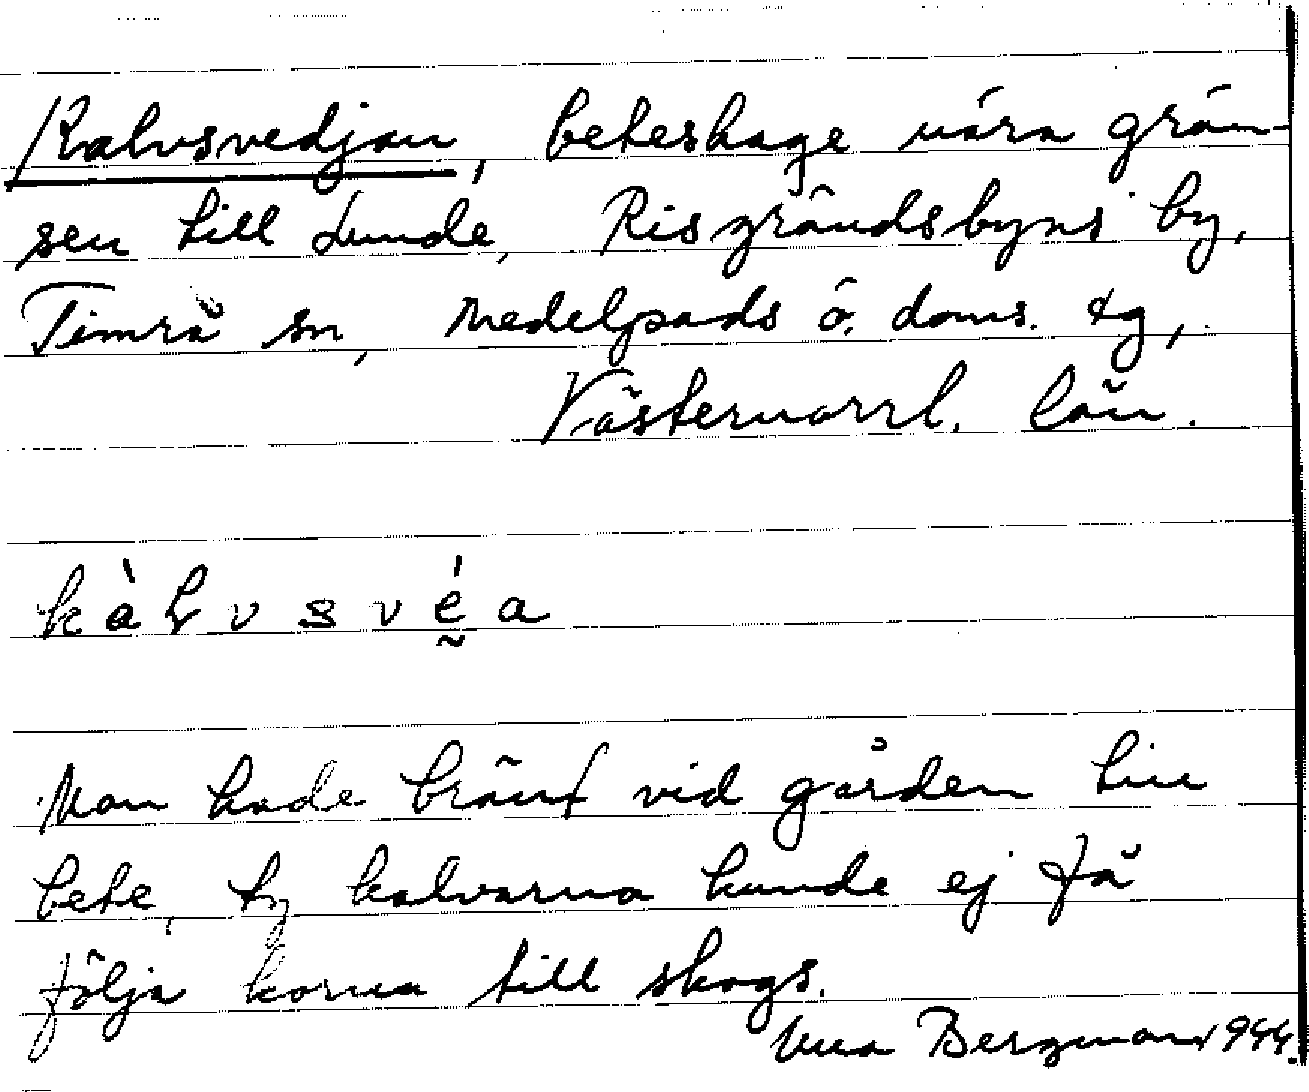 Kalvsvedjan, beteshage nära grän-
sen till Lunde, Risgrändsbyns by,
Timrå sn, Medelpads ö. doms. tg,
Västernorrl. län.
kàlvsvéa
Man hade bränt vid gården till
bete, ty kalvarna kunde ej få
följa korna till skogs.
Bergman 1944.